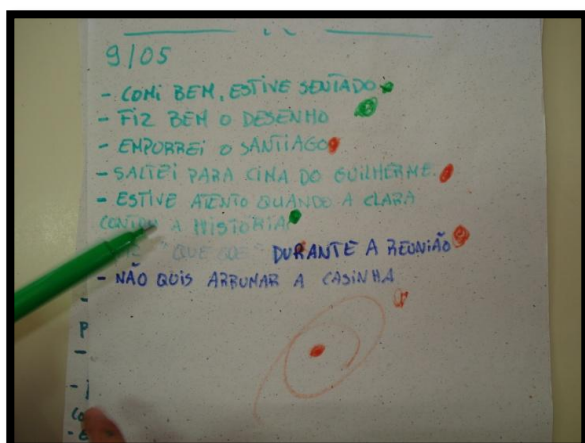 9/05
- COMI BEM, ESTIVE SENTADO
- FIZ BEM O DESENHO
- EMPURREI O SANTIAGO
- SALTEI PARA CIMA DO GUILHERME.
- ESTIVE ATENTO QUANDO A CLARA
CONTOU A HISTÓRIA
DURANTE A REUNIÃO
- NÃO QUIS ARRUMAR A CASINHA
P
-
-